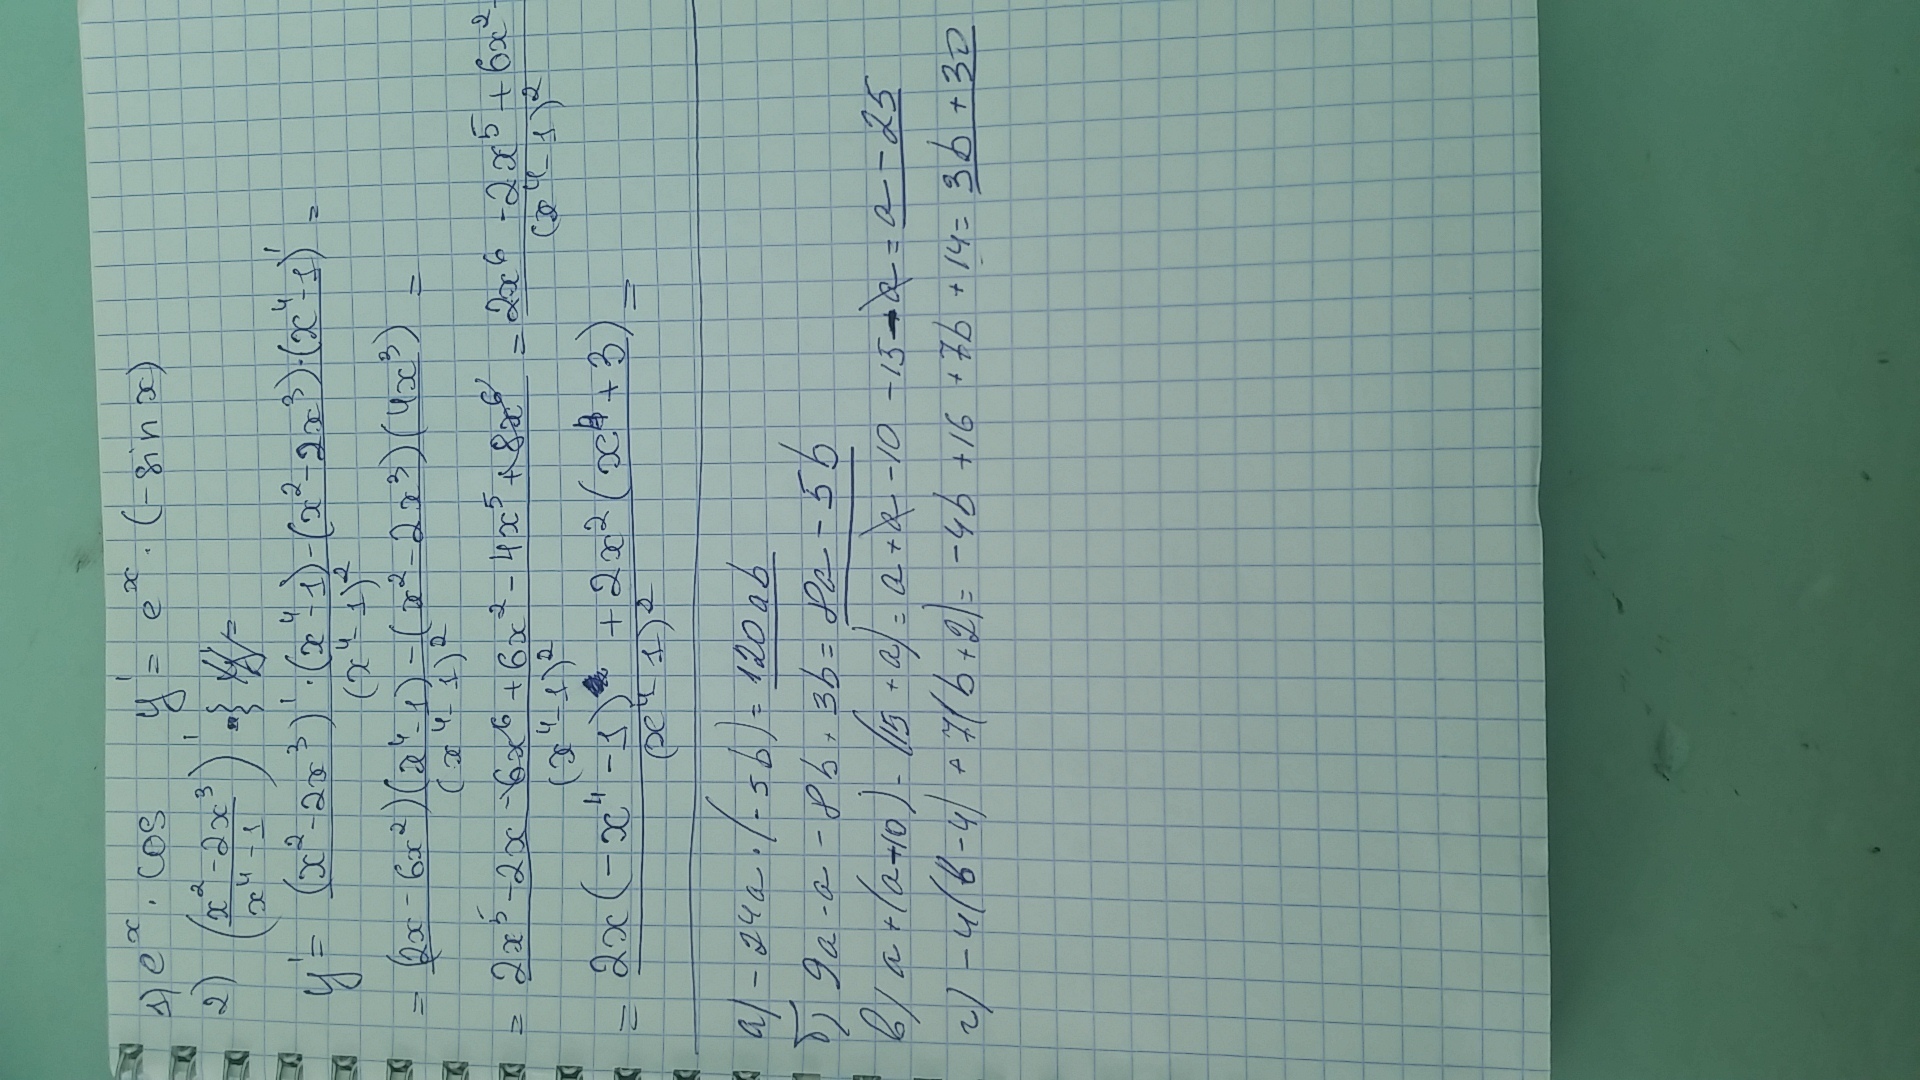 1) e^x · cos y' = e^x · (-sin x)
2) (x^2 - 2x^3 / x^4 - 1)' =
y' = (x^2 - 2x^3)' · (x^4 - 1) - (x^2 - 2x^3) · (x^4 - 1)' =
(x^4 - 1)^2
= (2x - 6x^2)(x^4 - 1) - (x^2 - 2x^3)(4x^3) =
(x^4 - 1)^2
= 2x^5 - 2x - 6x^6 + 6x^2 - 4x^5 + 8x^6 = 2x^6 - 2x^5 + 6x^2 -
(x^4 - 1)^2 (x^4 - 1)^2
= 2x(-x^4 - 1) + 2x^2(x^4 + 3) =
(x^4 - 1)^2
а) -24a · (-5b) = 120ab
б) 9a - a - 8b + 3b = 8a - 5b
в) a + (a - 10) - (15 + a) = a + a - 10 - 15 - a = a - 25
г) -4(b - 4) + 7(b + 2) = -4b + 16 + 7b + 14 = 3b + 30